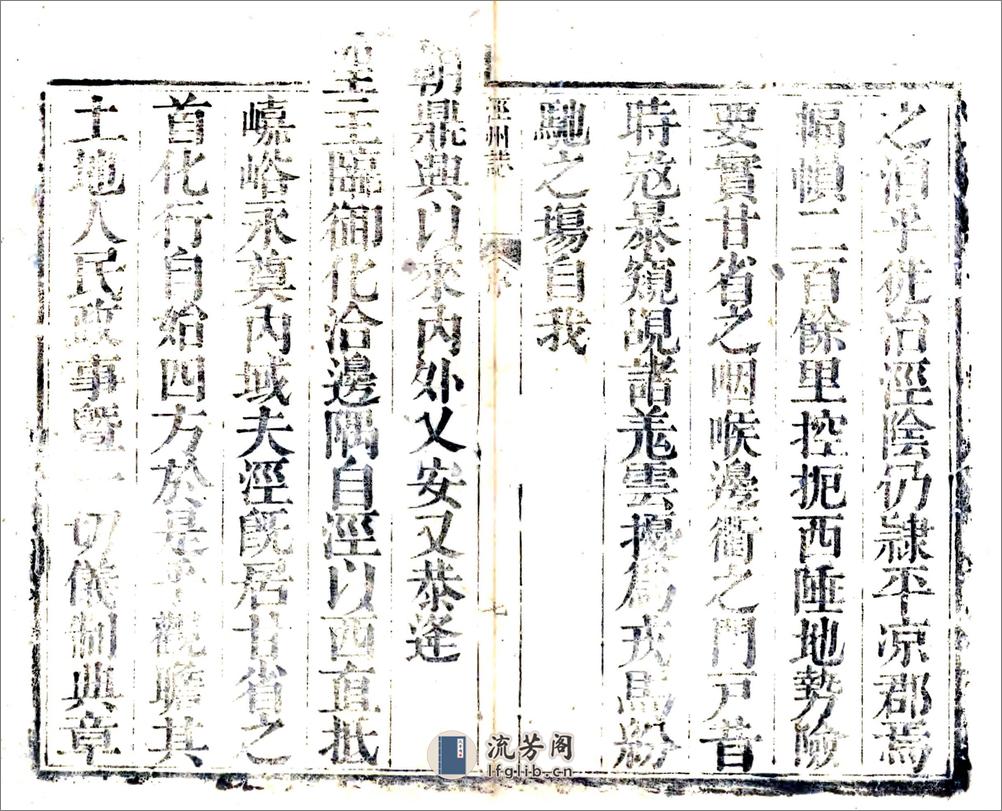 之湏乎徙治涇陰仍隷平凉郡焉
幅幀二百餘里控扼西陲地勢險
要實甘省之咽喉邊衝之門戸昔
時冦暴窺覬諸羗雲擾為戎馬紛
馳之塲自我
涇州誌
序
七
朝鼎典以來內外乂安又恭逢
聖主臨御化洽邊隅自涇以西直抵
峪永奠內域夫涇旣居甘省之
首化行自始四方於是乎觀瞻其
土地人民政事曁一切儀制典章
流芳阁
lfglib.cn